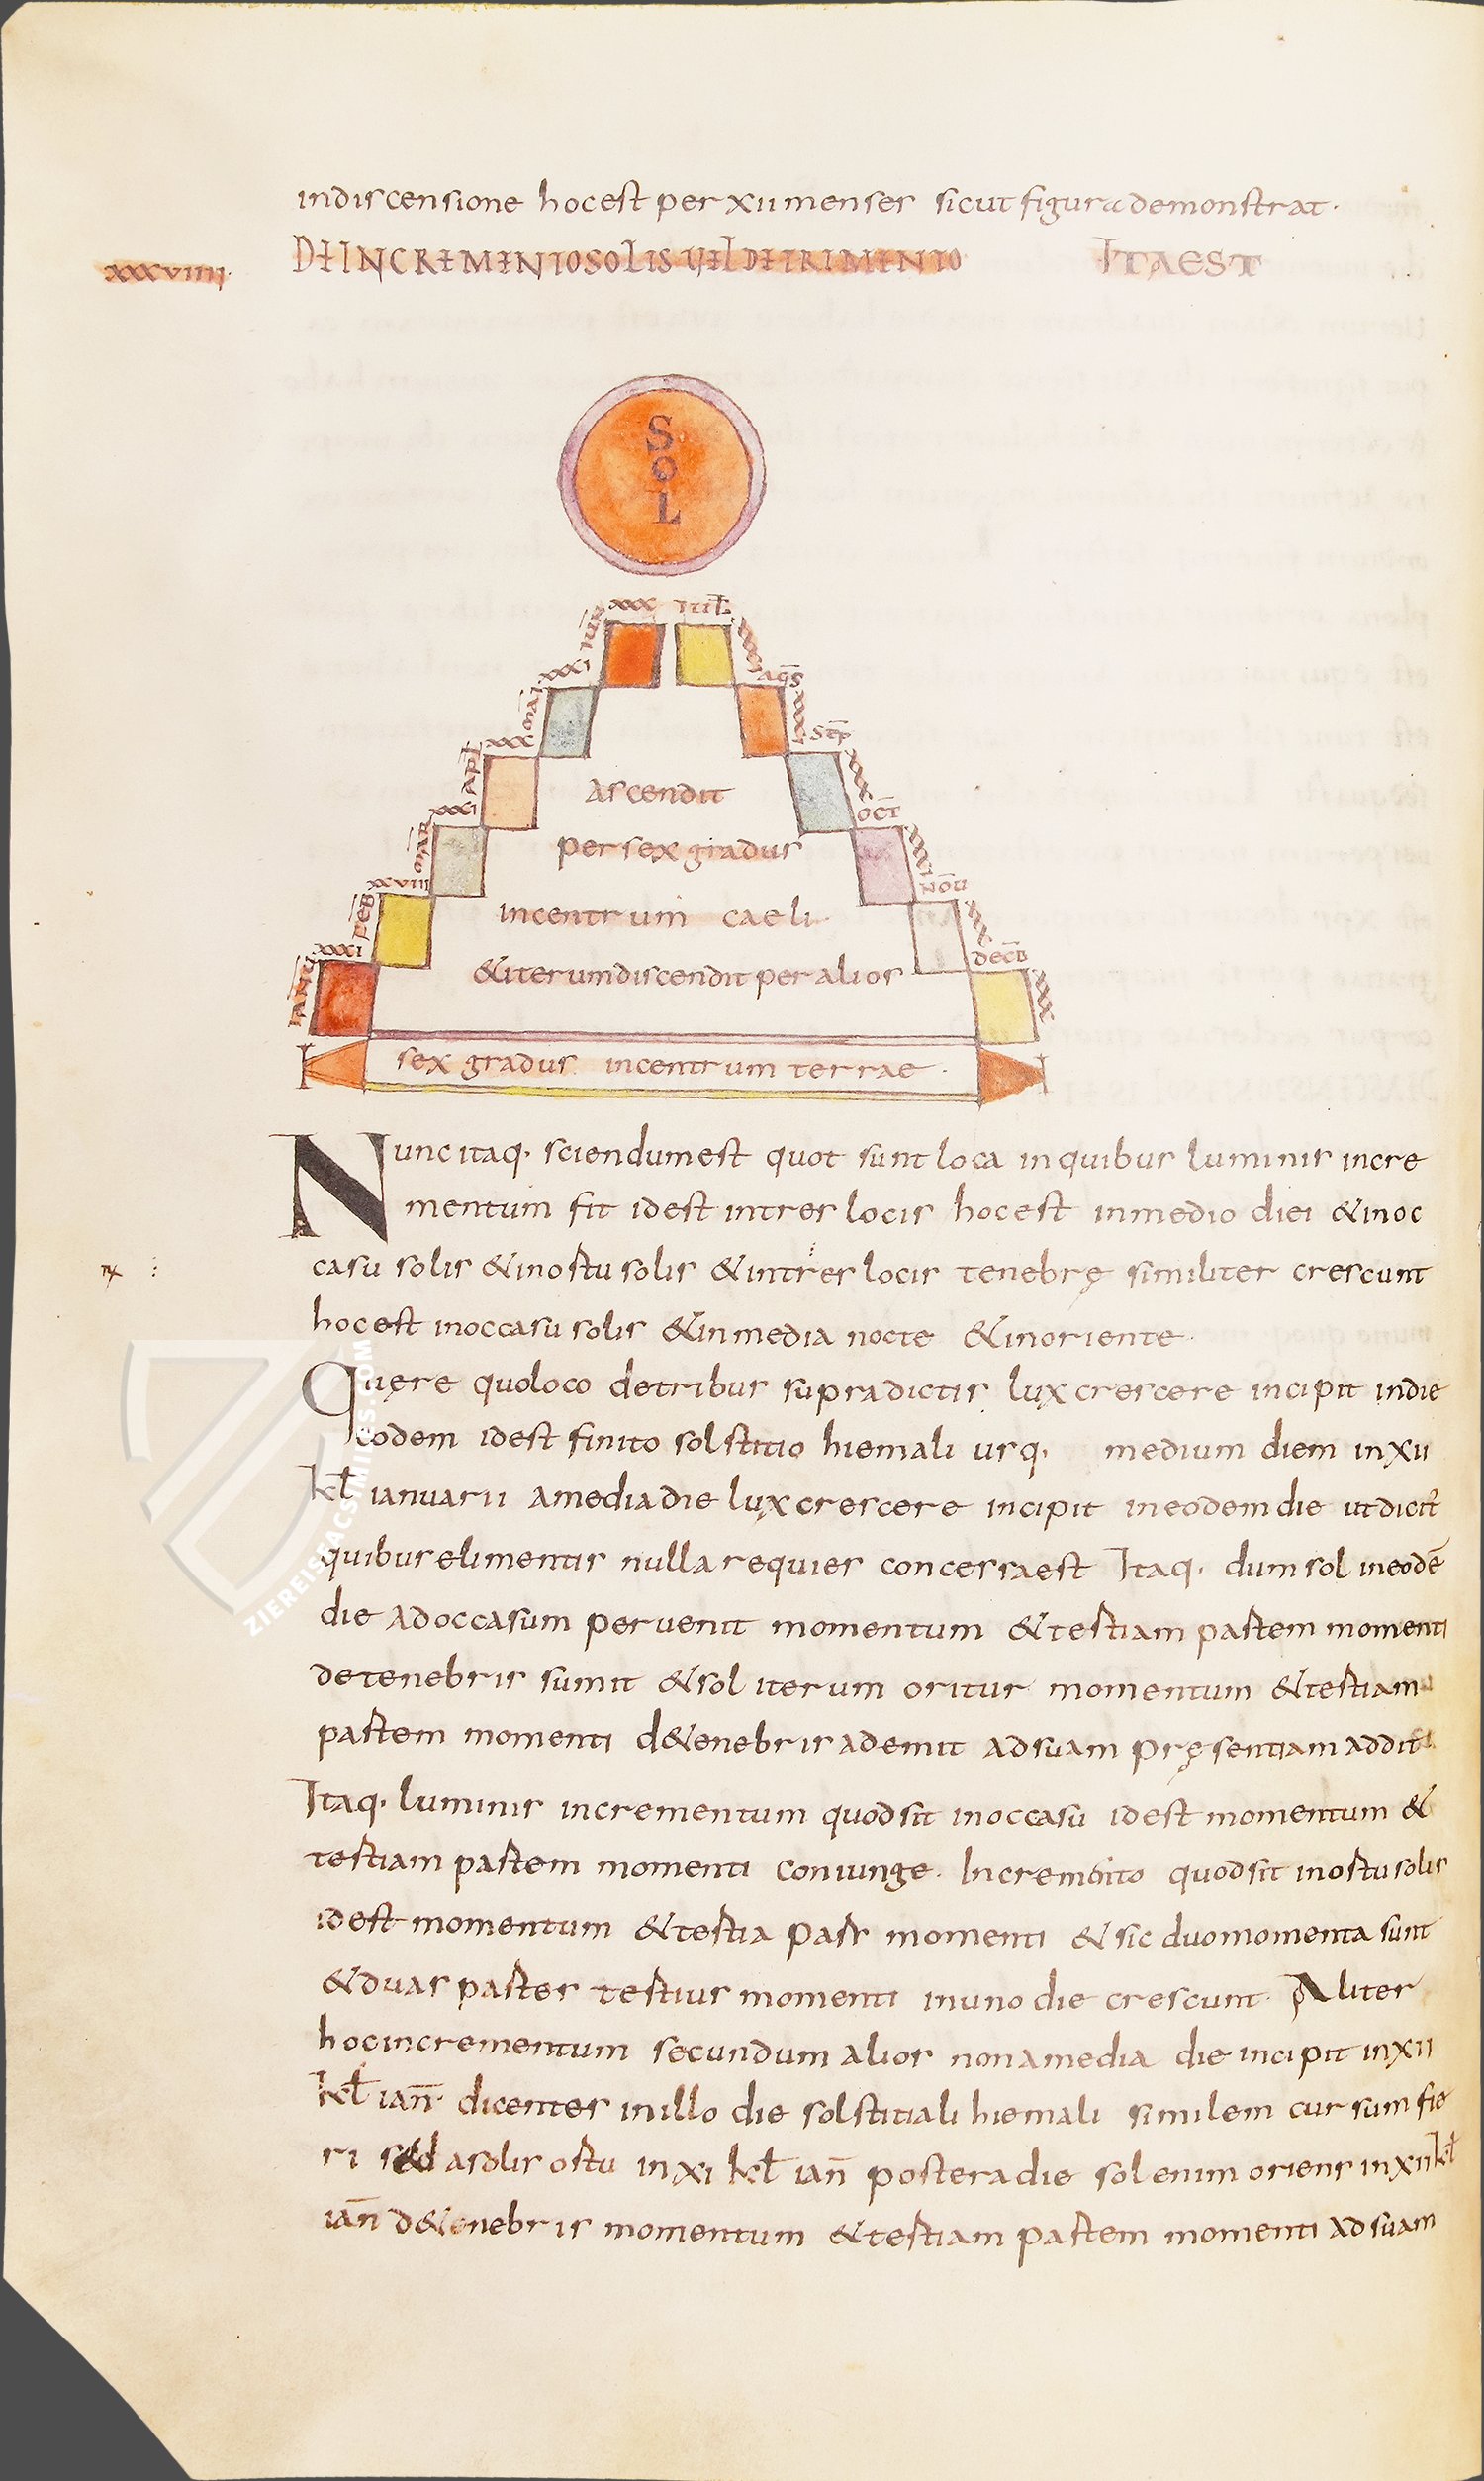 indiscensione hocest per xii menses sicut figura demonstrat·
xxxviiii·
DE INCREMENTO SOLIS VEL DETRIMENTO ITA EST
SOL
xxx iul̄
iun̄
xxxi aḡs
mai
xxx sēp
apl̄
xxxi oc̄t
mar
xxviii nōu
feb
xxxi decb̄
ian
xxxi
xxxi
xxx
xxxi
xxx
xxxi
Ascendit
per sex gradus
incentrum caeli
&iterum discendit per alios
sex gradus incentrum terrae·
Nunc itaq· sciendum est quot sunt loca in quibus luminis incre
mentum fit idest intres locis hocest inmedio diei &inoc
casu solis &inortu solis &intres locis tenebrę similiter crescunt
hocest inoccasu solis &inmedia nocte &inoriente·
Quęre quo loco detribus supradictis lux crescere incipit indie
eodem idest finito solstitio hiemali usq· medium diem inxii
kł ianuarii amedia die lux crescere incipit ineodem die ut dicit̄
quibus elimentis nulla requies concessa est Itaq· dum sol ineodē
die ad occasum peruenit momentum &tertiam partem momenti
detenebris sumit &sol iterum oritur momentum &tertiam
partem momenti d&enebris ademit adsuam pręsentiam addit
Itaq· luminis incrementum quod sit inoccasu idest momentum &
tertiam partem momenti coniunge· Incremento quod sit inortu solis
idest momentum &tertia pars momenti & sic duo momenta sunt
&duas partes tertius momenti inuno die crescunt· Aliter
hoc incrementum secundum alios non amedia die incipit inxii
kł ian̄· dicentes inillo die solstitiali hiemali similem cursum fie
ri sed asolis ortu inxi kł ian̄ postera die sol enim oriens inxii kł
ian̄ d&enebris momentum &tertiam partem momenti adsuam
ZIEREISFACSIMILES.COM